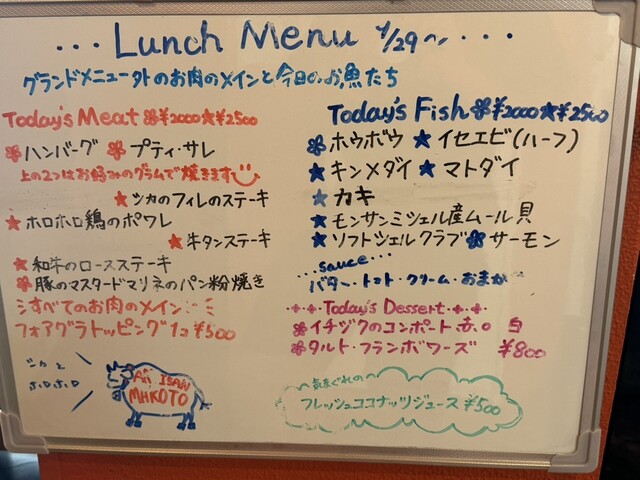 ...Lunch Menu 4/29~...
グランドメニュー外のお肉のメインと今日のお魚たち
Today's Meat ❀¥2000★¥2500
❀ハンバーグ ❀プティ・サレ
上の2つはお好みのグラムで焼きます
★シカのフィレのステーキ
★ホロホロ鶏のポワレ
★牛タンステーキ
★和牛のロースステーキ
❀豚のマスタードマリネのパン粉焼き
すべてのお肉のメインに
フォアグラトッピング1コ¥500
シカと
ホロホロ
AiiISAN
MAKOTO
Today's Fish ❀¥2000★¥2500
❀ホウボウ ★イセエビ(ハーフ)
★キンメダイ ★マトダイ
★カキ
★モンサンミシェル産ムール貝
★ソフトシェルクラブ❀サーモン
...sauce...
バター・トマト・クリーム・おまか
Today's Dessert
❀イチジクのコンポート 赤 白
❀タルト・フランボワーズ ¥800
気まぐれの
フレッシュココナッツジュース ¥500